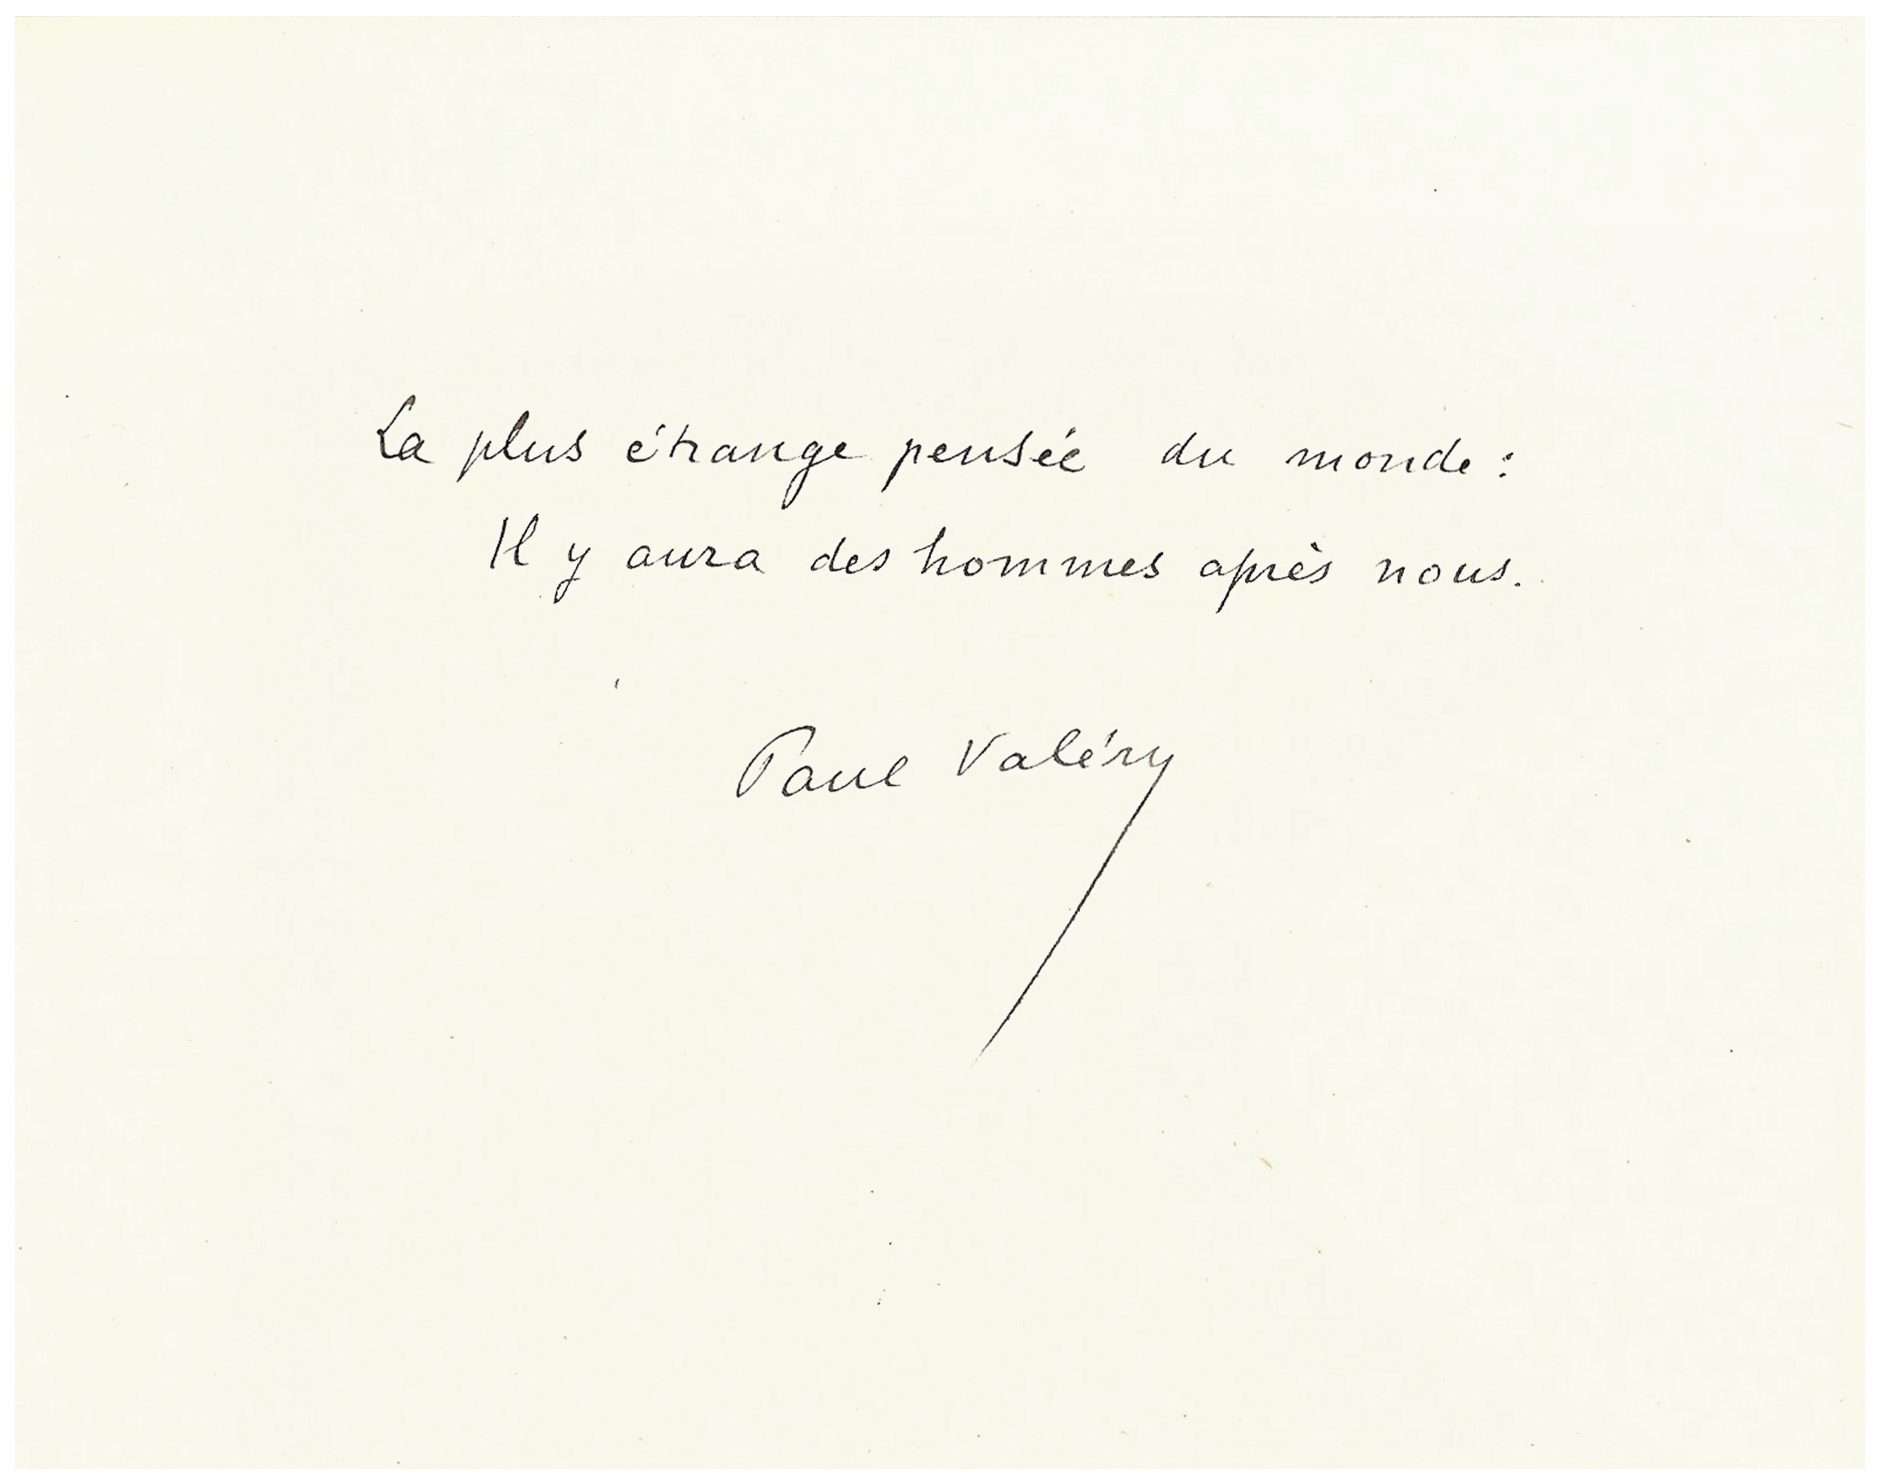 La plus étrange pensée du monde :
Il y aura des hommes après nous.
Paul Valéry